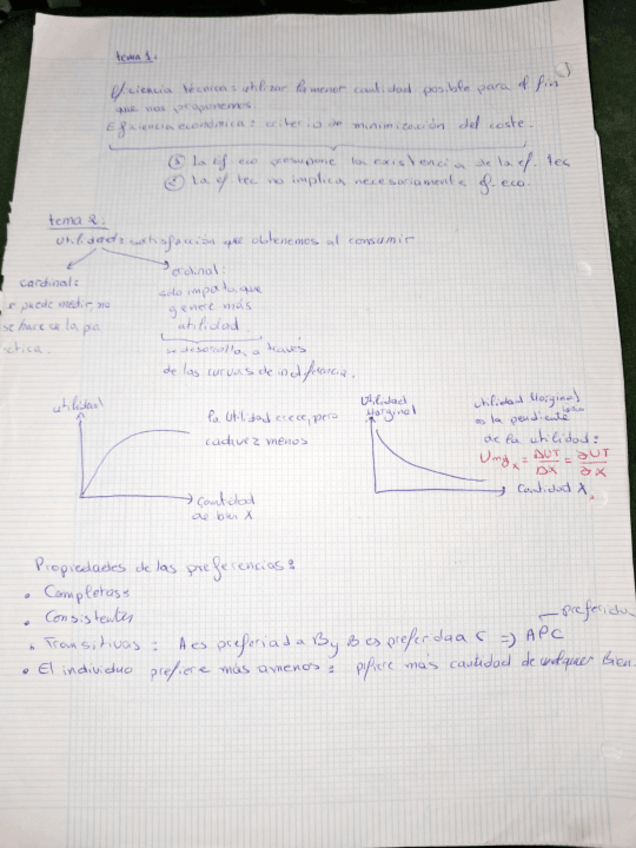 tema 1.
Eficiencia técnica: utilizar la menor cantidad posible para el fin
que nos proponemos.
Eficiencia económica: criterio de minimización del coste.
① La ef. eco presupone la existencia de la ef. tec
② La ef. tec no implica necesariamente ef. eco.
tema 2:
utilidad: satisfacción que obtenemos al consumir
cardinal:
se puede medir, no
se hace en la prá
ctica.
ordinal:
sólo importa que
genere más
utilidad.
se desarrolla a través
de las curvas de indiferencia.
utilidad
la utilidad crece, pero
cada vez menos
Cantidad
de bien X
Utilidad
Marginal
utilidad Marginal
es la pendiente
de la utilidad:
Umgx = ΔUT/ΔX = ∂UT/∂X
Cantidad X
Propiedades de las preferencias:
• Completas
• Consistentes
• Transitivas: A es preferida a B y B es preferida a C => APC
preferida
• El individuo prefiere más a menos: prefiere más cantidad de cualquier Bien.